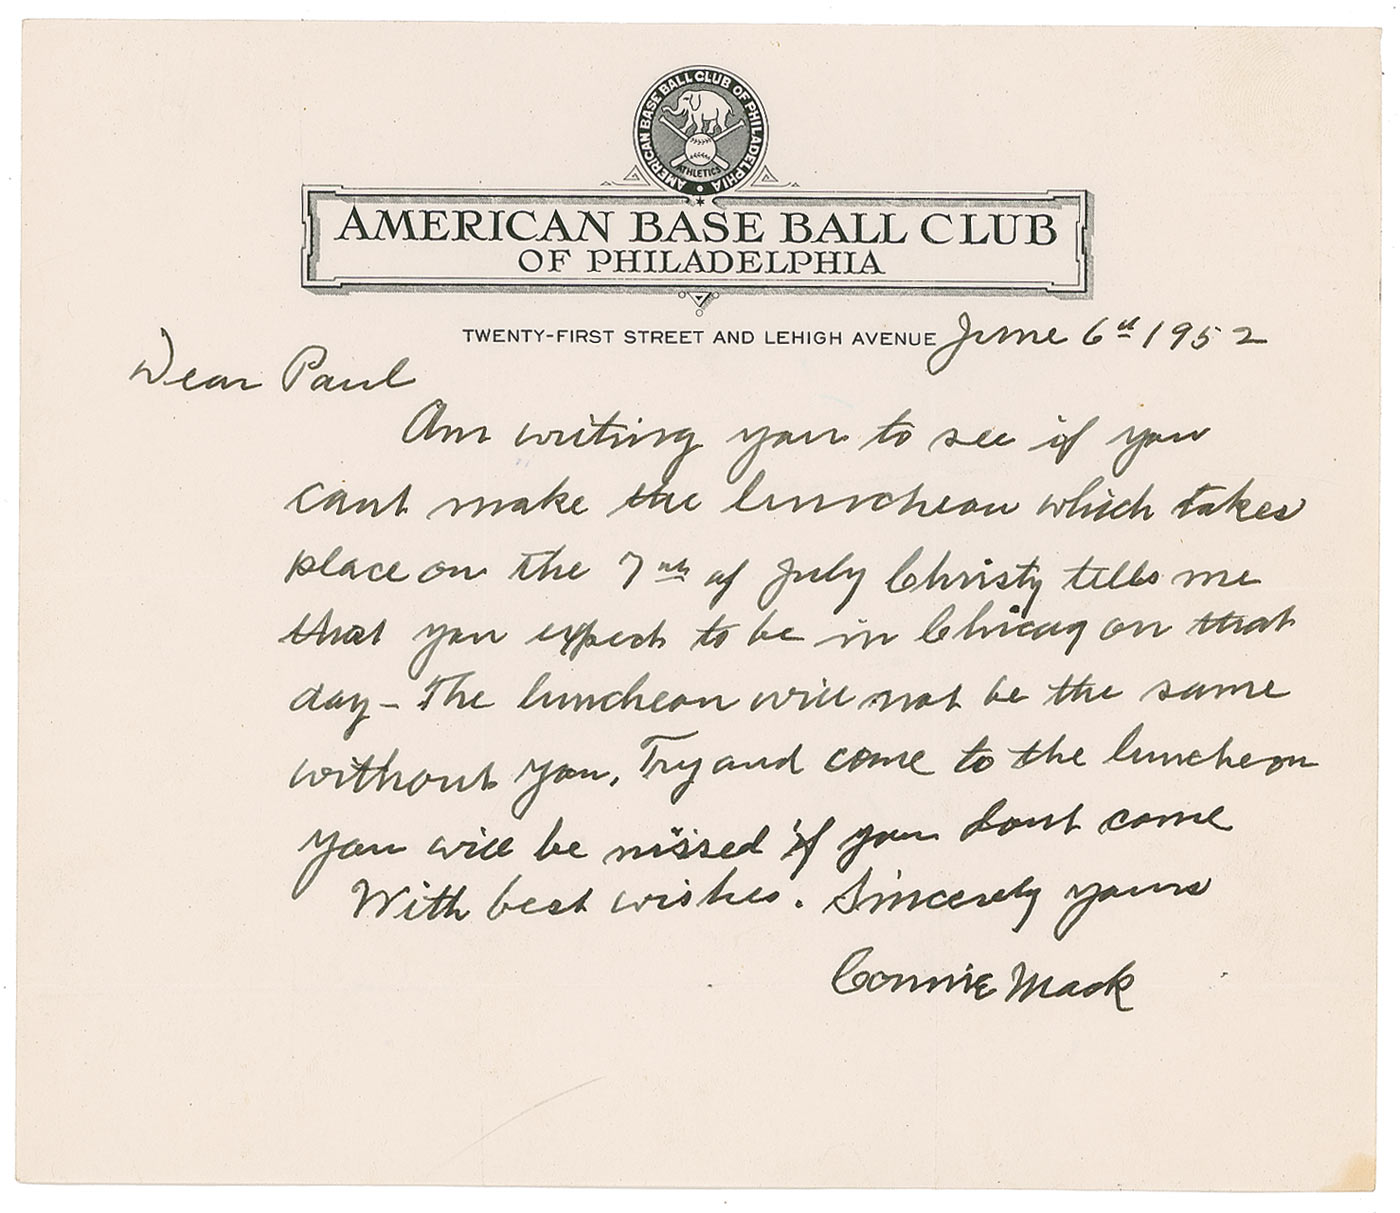 AMERICAN BASE BALL CLUB OF PHILADELPHIA
ATHLETICS
AMERICAN BASE BALL CLUB
OF PHILADELPHIA
TWENTY-FIRST STREET AND LEHIGH AVENUE June 6th 1952
Dear Paul
Am writing you to see if you
cant make the luncheon which takes
place on the 7th of July Christy tells me
that you expect to be in Chicago on that
day - The luncheon will not be the same
without you, Try and come to the luncheon
you will be missed if you dont come
With best wishes. Sincerely yours
Connie Mack